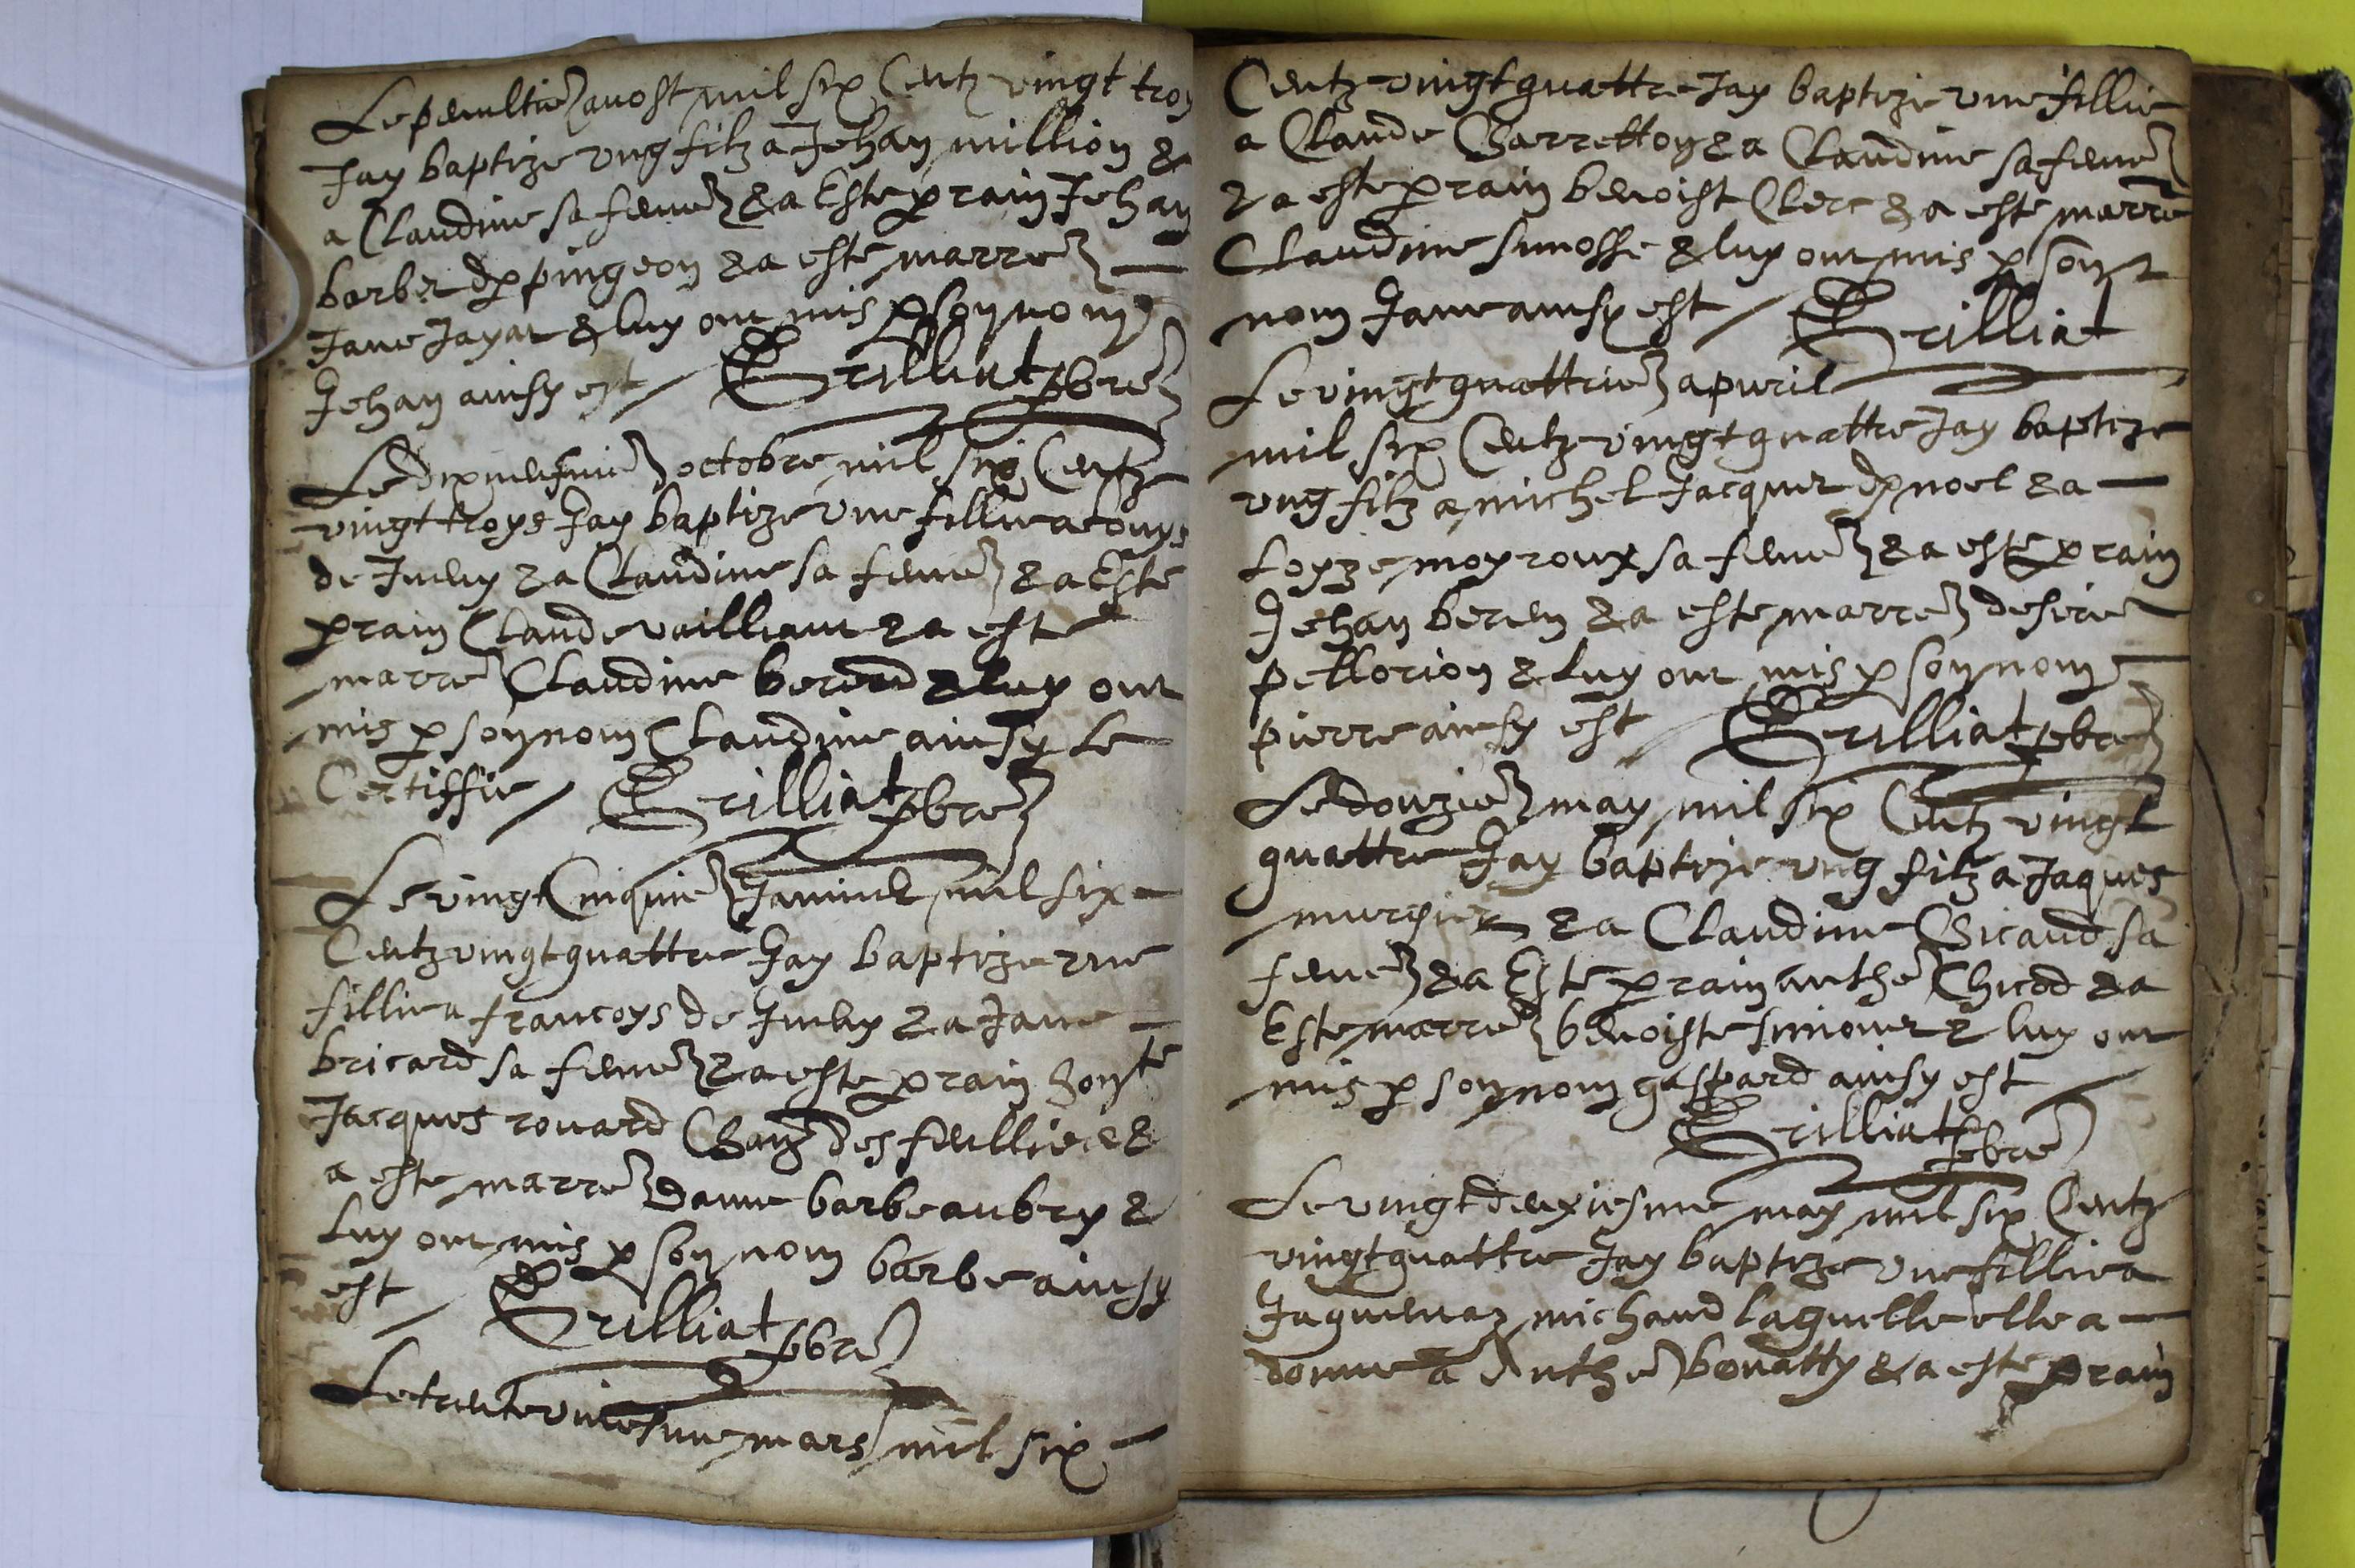 Le penultie aoost mil six Centz vingt troy
Jay baptize ung filz a Jehan million &
a Claudine sa feme & a Este prain Jehan
barbet dp pingeon & a este marre
Jane Jayat & luy ont mis p son nom
Jehan ainsy est Grilliat pbre
Le dix neufvie octobre mil six Centz
vingt troys Jay baptize une fillie a
de Jueux & a Claudine sa feme & a Este
prain Claude vailliant & a este
marre Claudine berend & luy ont
mis p son nom Claudine ainsy Le
Certiffie Grilliat pbre
Le vingt Cinquie Janvier mil six
Centz vingt quattre Jay baptize une
fillie a francoys de Jueux & a Jane
bricard sa feme & a este prain hon te
Jacques rouard Chanz des feullie &
a este marre Danne barbe aubry &
luy ont mis p son nom barbe ainsy
est Grilliat pbre
Le trente mars mil six
Centz vingt quattre Jay baptize une fillie
a Claude Charretton & a Claudine sa feme
& a este prain benoist Clerc & a este marre
Claudine & luy ont mis p son
nom Jane ainsy est Grilliat
Le vingt quattrie apvril
mil six Centz vingt quattre Jay baptize
ung filz a michel Jacquet dp noel & a
Loyze moyroux sa feme & a este prain
Jehan beren & a este marre desire
pellorion & luy ont mis p son nom
pierre ainsy est Grilliat pbre
Le douzie may mil six Centz vingt
quattre Jay baptize ung filz a Jaques
murgier & a Claudine Chicand sa
feme & a Este prain anthe Chicod & a
Este marre benoiste simonet & luy ont
mis p son nom gaspard ainsy est
Grilliat pbre
Le vingt deuxiesme may mil six Centz
vingt quattre Jay baptize une fillie a
Jaquemaz michaud laquelle elle a
donne a Anthe bonatty & a este prain